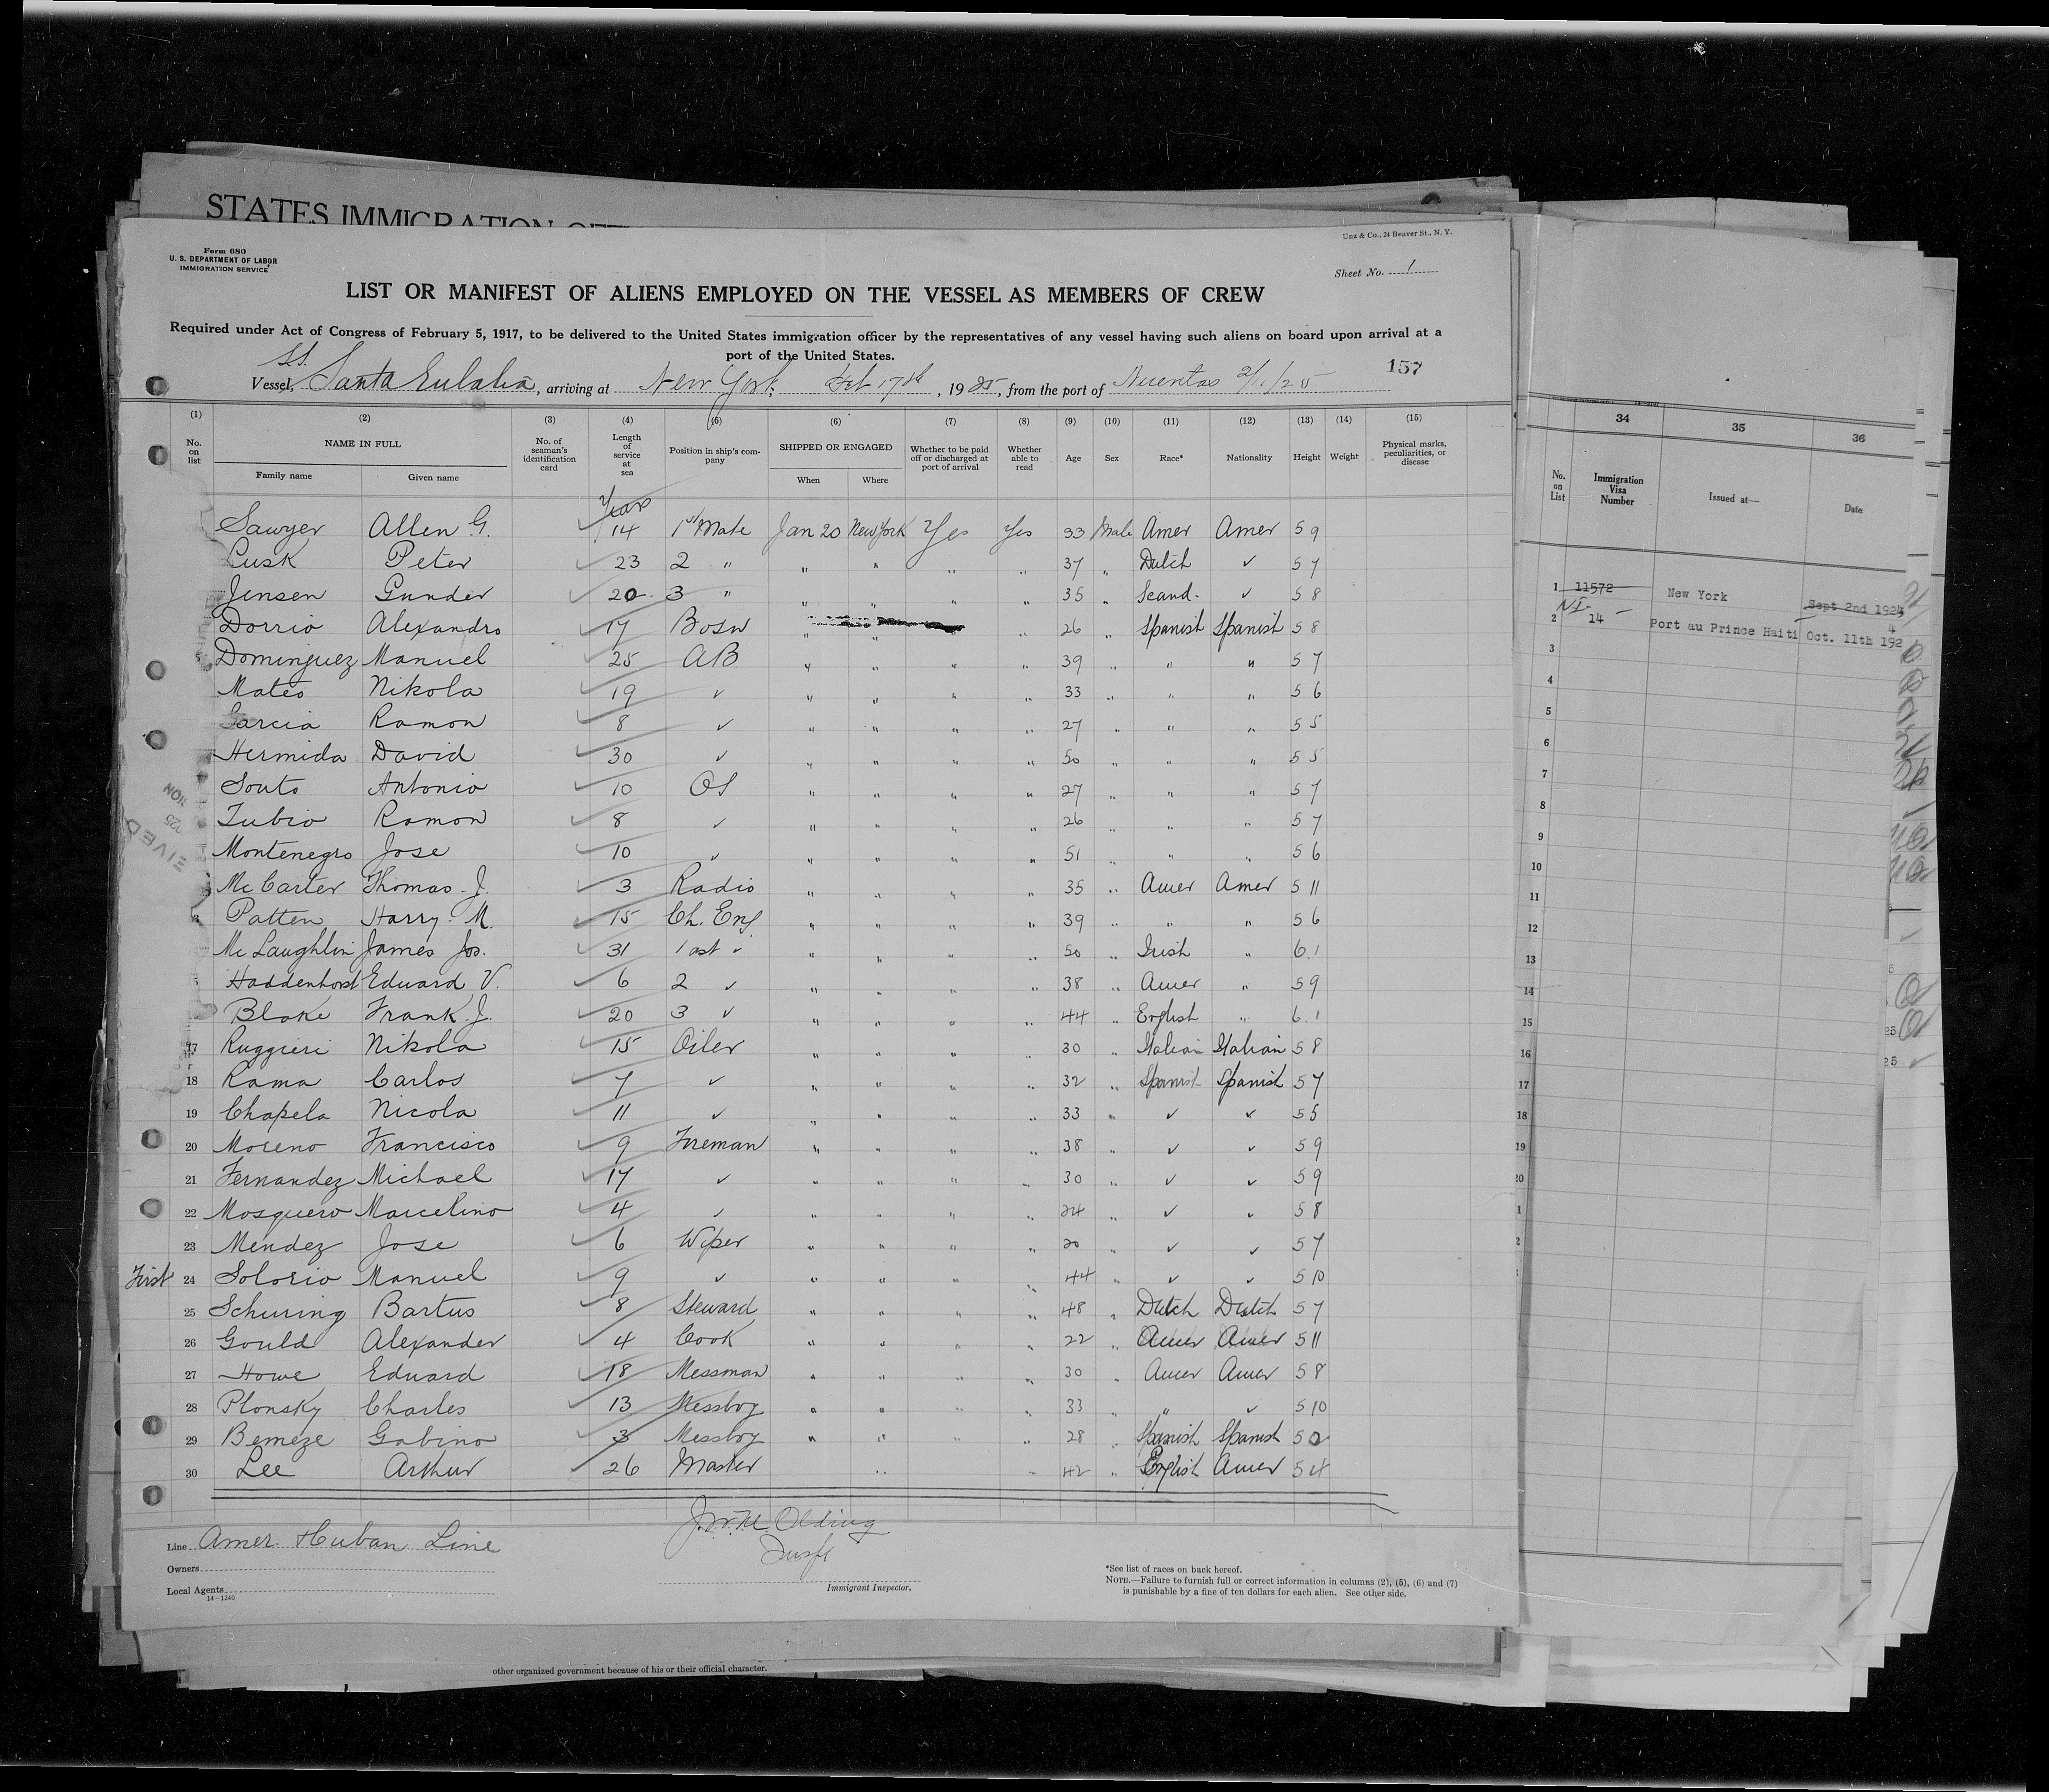 STATES IMMIGRATION
Unz & Co., 24 Beaver St., N. Y.
Form 680
U. S. DEPARTMENT OF LABOR
IMMIGRATION SERVICE
Sheet No. 1
LIST OR MANIFEST OF ALIENS EMPLOYED ON THE VESSEL AS MEMBERS OF CREW
Required under Act of Congress of February 5, 1917, to be delivered to the United States immigration officer by the representatives of any vessel having such aliens on board upon arrival at a
port of the United States.
157
Vessel, SS. Santa Eulalia, arriving at New York, Feb 17th, 1925, from the port of Nuevitas 2/11/25
(1) (2) (3) (4) (5) (6) (7) (8) (9) (10) (11) (12) (13) (14) (15)
No. on list NAME IN FULL No. of seaman's identification card Length of service at sea Position in ship's company SHIPPED OR ENGAGED Whether to be paid off or discharged at port of arrival Whether able to read Age Sex Race* Nationality Height Weight Physical marks, peculiarities, or disease
Family name Given name When Where
Years
Sawyer Allen G. 14 1st Mate Jan 20 New York Yes Yes 33 Male Amer Amer 5 9
Lusk Peter 23 2 " " " " " 37 " Dutch ✓ 5 7
Jensen Gunder 20 3 " " " " " 35 " Scand. ✓ 5 8
Dorrio Alexandro 17 Bosn " " " 26 " Spanish Spanish 5 8
5 Dominguez Manuel 25 AB " " " " 39 " " " 5 7
Mateo Nikola 19 ✓ " " " " 33 " " " 5 6
Garcia Ramon 8 ✓ " " " " 27 " " " 5 5
Hermida David 30 ✓ " " " " 50 " " " 5 5
Souto Antonio 10 OS " " " " 27 " " " 5 7
Tubio Ramon 8 ✓ " " " " 26 " " " 5 7
Montenegro Jose 10 ✓ " " " " 51 " " " 5 6
McCarter Thomas J. 3 Radio " " " " 35 " Amer Amer 5 11
Patten Harry M. 15 Ch. Eng " " " " 39 " " " 5 6
McLaughlin James Jos. 31 1 ast ✓ " " " " 50 " Irish " 6.1
Haddenhorst Eduard V. 6 2 ✓ " " " " 38 " Amer " 5 9
Blake Frank J. 20 3 ✓ " " " " 44 " English " 6.1
17 Ruggieri Nikola 15 Oiler " " " " 30 " Italian Italian 5 8
18 Rama Carlos 7 ✓ " " " " 32 " Spanish Spanish 5 7
19 Chapela Nicola 11 ✓ " " " " 33 " ✓ ✓ 5 5
20 Moreno Francisco 9 Fireman " " " " 38 " ✓ ✓ 5 9
21 Fernandez Michael 17 ✓ " " " " 30 " ✓ ✓ 5 9
22 Mosquero Marcelino 4 ✓ " " " " 24 " ✓ ✓ 5 8
23 Mendez Jose 6 Wiper " " " " 20 " ✓ ✓ 5 7
First 24 Solorio Manuel 9 ✓ " " " " 44 " ✓ ✓ 5 10
25 Schuring Bartus 8 Steward " " " " 48 " Dutch Dutch 5 7
26 Gould Alexander 4 Cook " " " " 22 " Amer Amer 5 11
27 Howe Eduard 18 Messman " " " " 30 " Amer Amer 5 8
28 Plonsky Charles 13 Messboy " " " " 33 " " ✓ 5 10
29 Bemeze Gabino 3 Messboy " " " " 28 " Spanish Spanish 5 2
30 Lee Arthur 26 Master " " 42 " English Amer 5 4
Line Amer. & Cuban Line
Owners
Local Agents
14—1240
Immigrant Inspector.
*See list of races on back hereof.
NOTE.—Failure to furnish full or correct information in columns (2), (5), (6) and (7)
is punishable by a fine of ten dollars for each alien. See other side.
other organized government because of his or their official character.
34 35 36
No. on List Immigration Visa Number Issued at— Date
1 11572 New York Sept 2nd 1924
2 14 Port au Prince Haiti Oct. 11th 1924
3
4
5
6
7
8
9
10
11
12
13
14
15
16
17
18
19
20